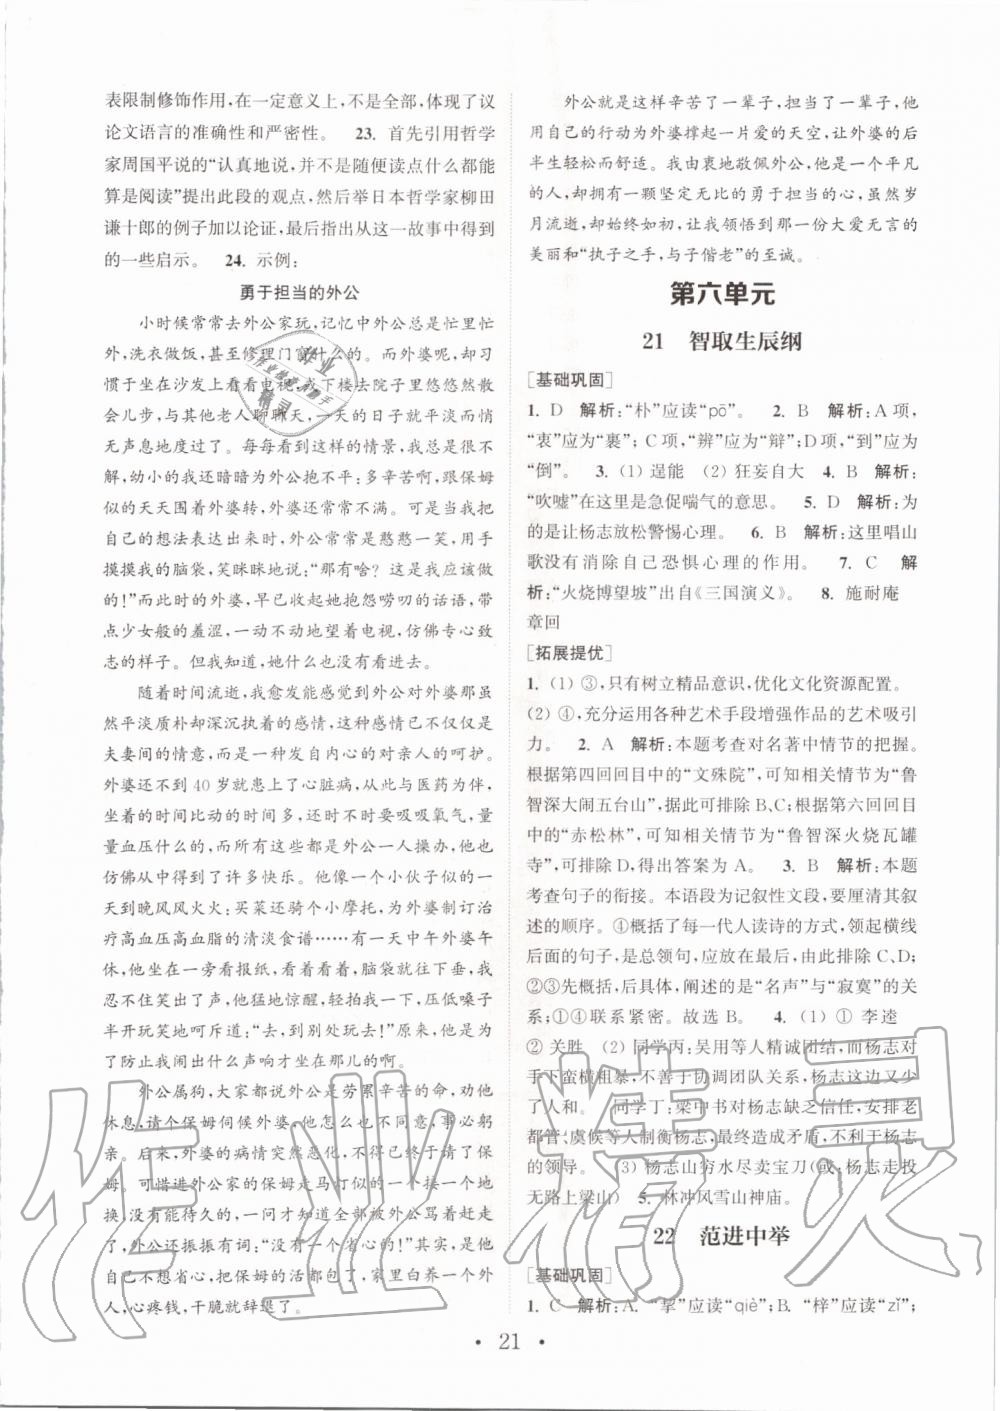 表限制修饰作用，在一定意义上，不是全部，体现了议
论文语言的准确性和严密性。 23. 首先引用哲学
家周国平说的“认真地说，并不是随便读点什么都能
算是阅读”提出此段的观点，然后举日本哲学家柳田
谦十郎的例子加以论证，最后指出从这一故事中得到
的一些启示。 24. 示例：
勇于担当的外公
小时候常常去外公家玩，记忆中外公总是忙里忙
外，洗衣做饭，甚至修理门窗什么的。而外婆，却习
惯于坐在沙发上看看电视，或下楼去院子里悠悠然散
会儿步，与其他老人聊聊天，一天的日子就平淡而悄
无声息地度过了。每每看到这样的情景，我总是很不
解，幼小的我还暗暗为外公抱不平：多辛苦啊，跟保姆
似的天天围着外婆转，外婆还常常不满。可是当我把
自己的想法表达出来时，外公常常是憨憨一笑，用手
摸摸我的脑袋，笑眯眯地说：“那有啥？这是我应该做
的！”而此时的外婆，早已收起她抱怨唠叨的话语，带
点少女般的羞涩，一动不动地望着电视，仿佛专心致
志的样子。但我知道，她什么也没有看进去。
随着时间流逝，我愈发感觉到外公对外婆那虽
然平淡质朴却深沉执着的感情，这种感情已不仅仅是
夫妻间的情意，而是一种发自内心的对亲人的呵护。
外婆还不到 40 岁就患上了心脏病，从此与医药为伴，
坐着的时间比站着的时间多，不时还要吸吸氧气，量
量血压什么的。而所有这些都是外公一人操办，他也
仿佛从中得到了许多快乐。他像一个小伙子似的一
天到晚风风火火：买菜还骑个小摩托，为外婆制订治
疗高血压高血脂的清淡食谱……有一天中午外婆午
休，他坐在一旁看报纸，看着看着，脑袋就往下垂，我
忍不住笑出了声，他猛地惊醒，机警地一笑，压低嗓子
半开玩笑地呵斥道：“去，到别处玩去！”原来，他是为
了防止我闹出什么声响才坐在那儿的啊。
外公属狗，大家都说外公是劳累辛苦的命，劝他
休息，请个保姆伺候外婆，外公总是不同意，事必躬
亲。后来，外婆的病情突然恶化，不得已请了个保
姆。可惜进外公家的保姆走马灯似的一个接一个地
换，没有能待久的，一问，全部被外公骂着赶走
了。外公还振振有词：“没有一个省心的！”其实，是
他自己不想省心，把保姆的活全干了，家里白养一个外
人，心疼钱，干脆就辞退了。
外公就是这样辛苦了一辈子，担当了一辈子，他
用自己的行动为外婆撑起一片爱的天空，让外婆的后
半生轻松而舒适。我由衷地敬佩外公，他是一个平凡
的人，却拥有一颗坚定无比的勇于担当的心，虽然岁
月流逝，却始终如一，我也领悟到那一份大爱无言的
美丽和“执子之手，与子偕老”的至诚。
第六单元
21 智取生辰纲
[基础巩固]
1. D 解析：“朴”应读“pō”。 2. B 解析：A 项，
“衷”应为“裹”；C 项，“辨”应为“辩”；D 项，“到”应为
“倒”。 3. (1) 逞能 (2) 狂妄自大 4. B 解析：
“吹嘘”在这里是急促喘气的意思。 5. D 解析：为
的是让杨志放松警惕心理。 6. B 解析：这里唱山
歌没有消除自己恐惧心理的作用。 7. C 解
析：“火烧博望坡”出自《三国演义》。 8. 施耐庵
章回
[拓展提优]
1. (1) ③，只有树立精品意识，优化文化资源配置。
(2) ④，充分运用各种艺术手段增强作品的艺术吸引
力。 2. A 解析：本题考查对名著中情节的把握。
根据第四回回目中的“文殊院”，可知相关情节为“鲁
智深大闹五台山”，据此可排除 B、C；根据第六回回目
中的“赤松林”，可知相关情节为“鲁智深火烧瓦罐
寺”，可排除 D，得出答案为 A。 3. B 解析：本题
考查句子的衔接。本语段为记叙性文段，要厘清其叙
述的顺序。①概括了每一代人读诗的方式，领起概括
后面的句子，是总领句，应放在最前，由此排除 C、D；
②③先概括，后具体，阐述的是“名声”与“寂寞”的关
系；①④联系紧密。故选 B。 4. (1) ① 李逵
② 关胜 (2) 同学丙：吴用等人精诚团结，而杨志对
手下蛮横粗暴，不善于协调团队关系，杨志这边缺少
了人和。 同学丁：梁中书对杨志缺乏信任，安排老
都管、虞候等人制衡杨志，最终造成矛盾，不利于杨志
的领导。 (3) 杨志山穷水尽卖宝刀(或：杨志走投
无路上梁山) 5. 林冲风雪山神庙。
22 范进中举
[基础巩固]
1. C 解析：A. “挈”应读“qiè”；B. “梓”应读“zǐ”；
• 21 •
作业精灵